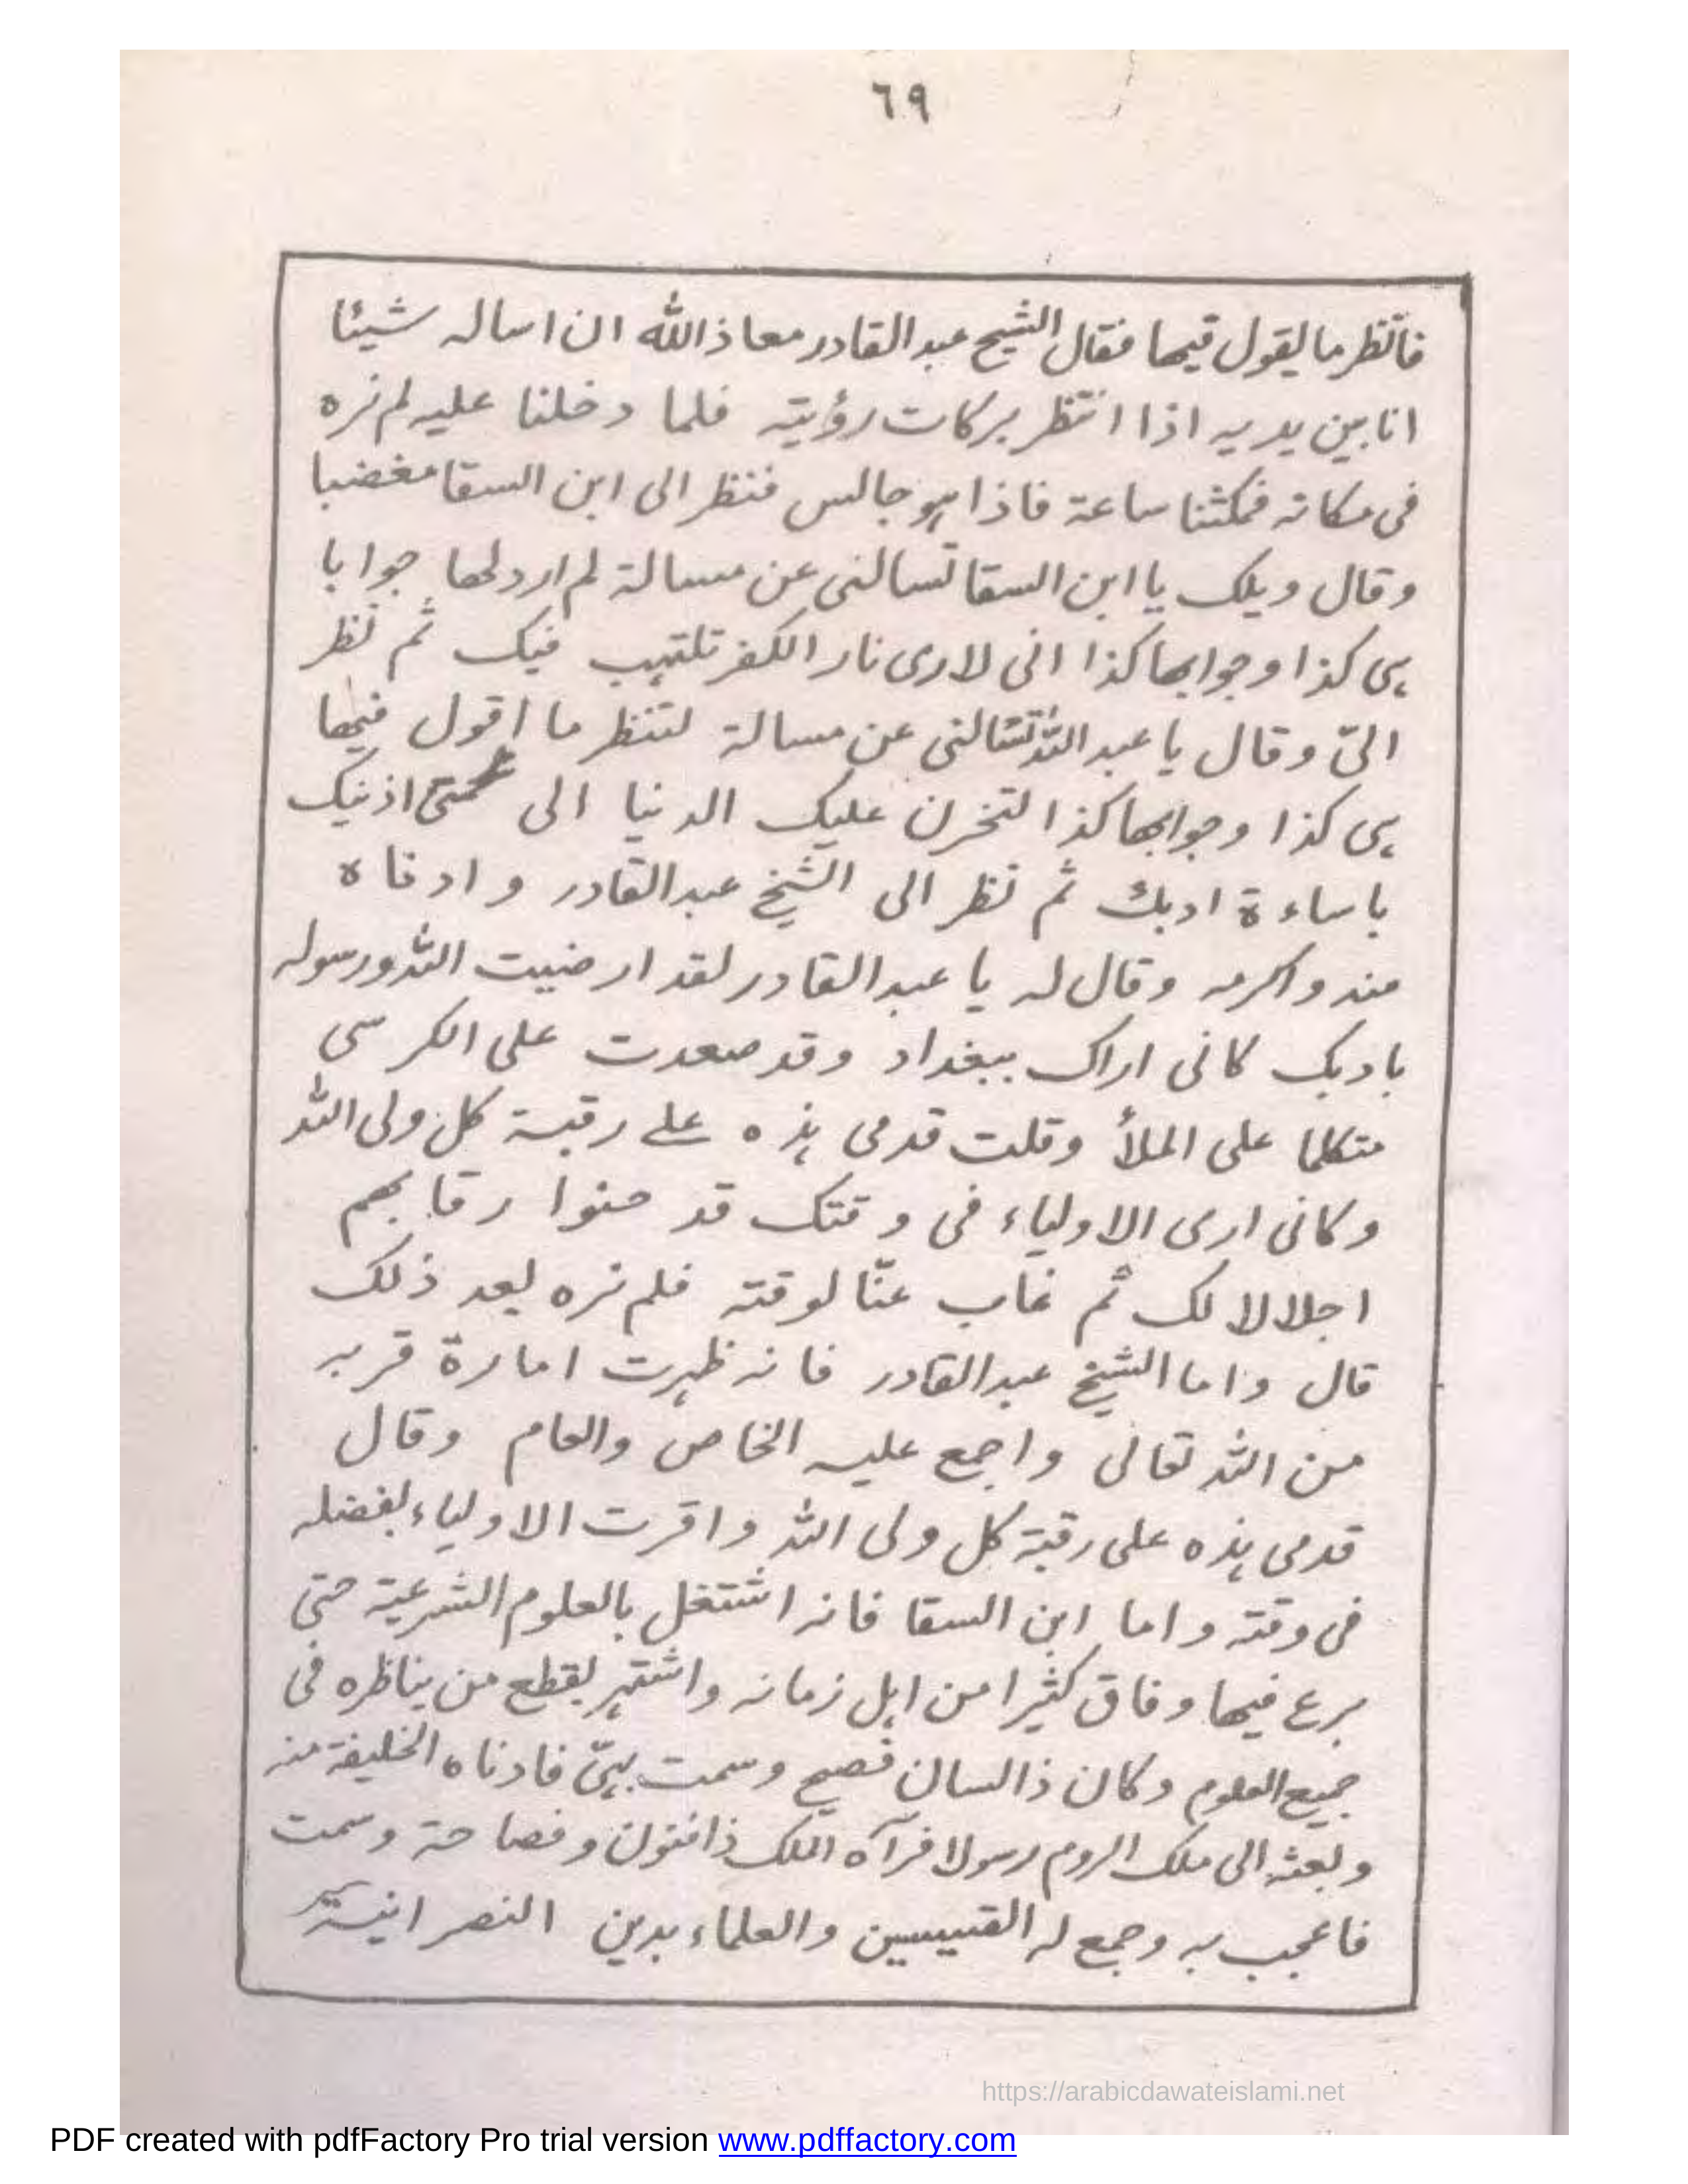 ٦٩
فانظر ما يقول فيها فقال الشيخ عبد القادر معاذ الله ان اساله شيئا
انا بين يديه اذا انتظر بركات رؤيته فلما دخلنا عليه لم نره
فى مكانه فمكثنا ساعة فاذا هو جالس فنظر الى ابن السقا مغضبا
وقال ويلك يا ابن السقا تسالنى عن مسالة لم ارد لها جوابا
هى كذا وجوابها كذا انى لارى نار الكفر تلتهب فيك ثم نظر
الىّ وقال يا عبد الله تسالنى عن مسالة لتنظر ما اقول فيها
هى كذا وجوابها كذا لتخرن عليك الدنيا الى اذنيك
باساءة ادبك ثم نظر الى الشيخ عبد القادر وادناه
منه واكرمه وقال له يا عبد القادر لقد ارضيت الله ورسوله
بادبك كانى اراك ببغداد وقد صعدت على الكرسى
متكلما على الملأ وقلت قدمى هذه على رقبة كل ولى الله
وكانى ارى الاولياء فى وقتك قد حنوا رقابهم
اجلالا لك ثم غاب عنّا لوقته فلم نره بعد ذلك
قال واما الشيخ عبد القادر فانه ظهرت امارة قربه
من الله تعالى واجمع عليه الخاص والعام وقال
قدمى هذه على رقبة كل ولى الله واقرت الاولياء بفضله
فى وقته واما ابن السقا فانه اشتغل بالعلوم الشرعية حتى
برع فيها وفاق كثيرا من اهل زمانه واشتهر بقطع من يناظره فى
جميع العلوم وكان ذا لسان فصيح وسمت بهىّ فادناه الخليفة منه
وبعثه الى ملك الروم رسولا فرآه الملك ذا فنون وفصاحة وسمت
فاعجب به وجمع له القسيسين والعلماء بدين النصرانية
https://arabicdawateislami.net
PDF created with pdfFactory Pro trial version www.pdffactory.com